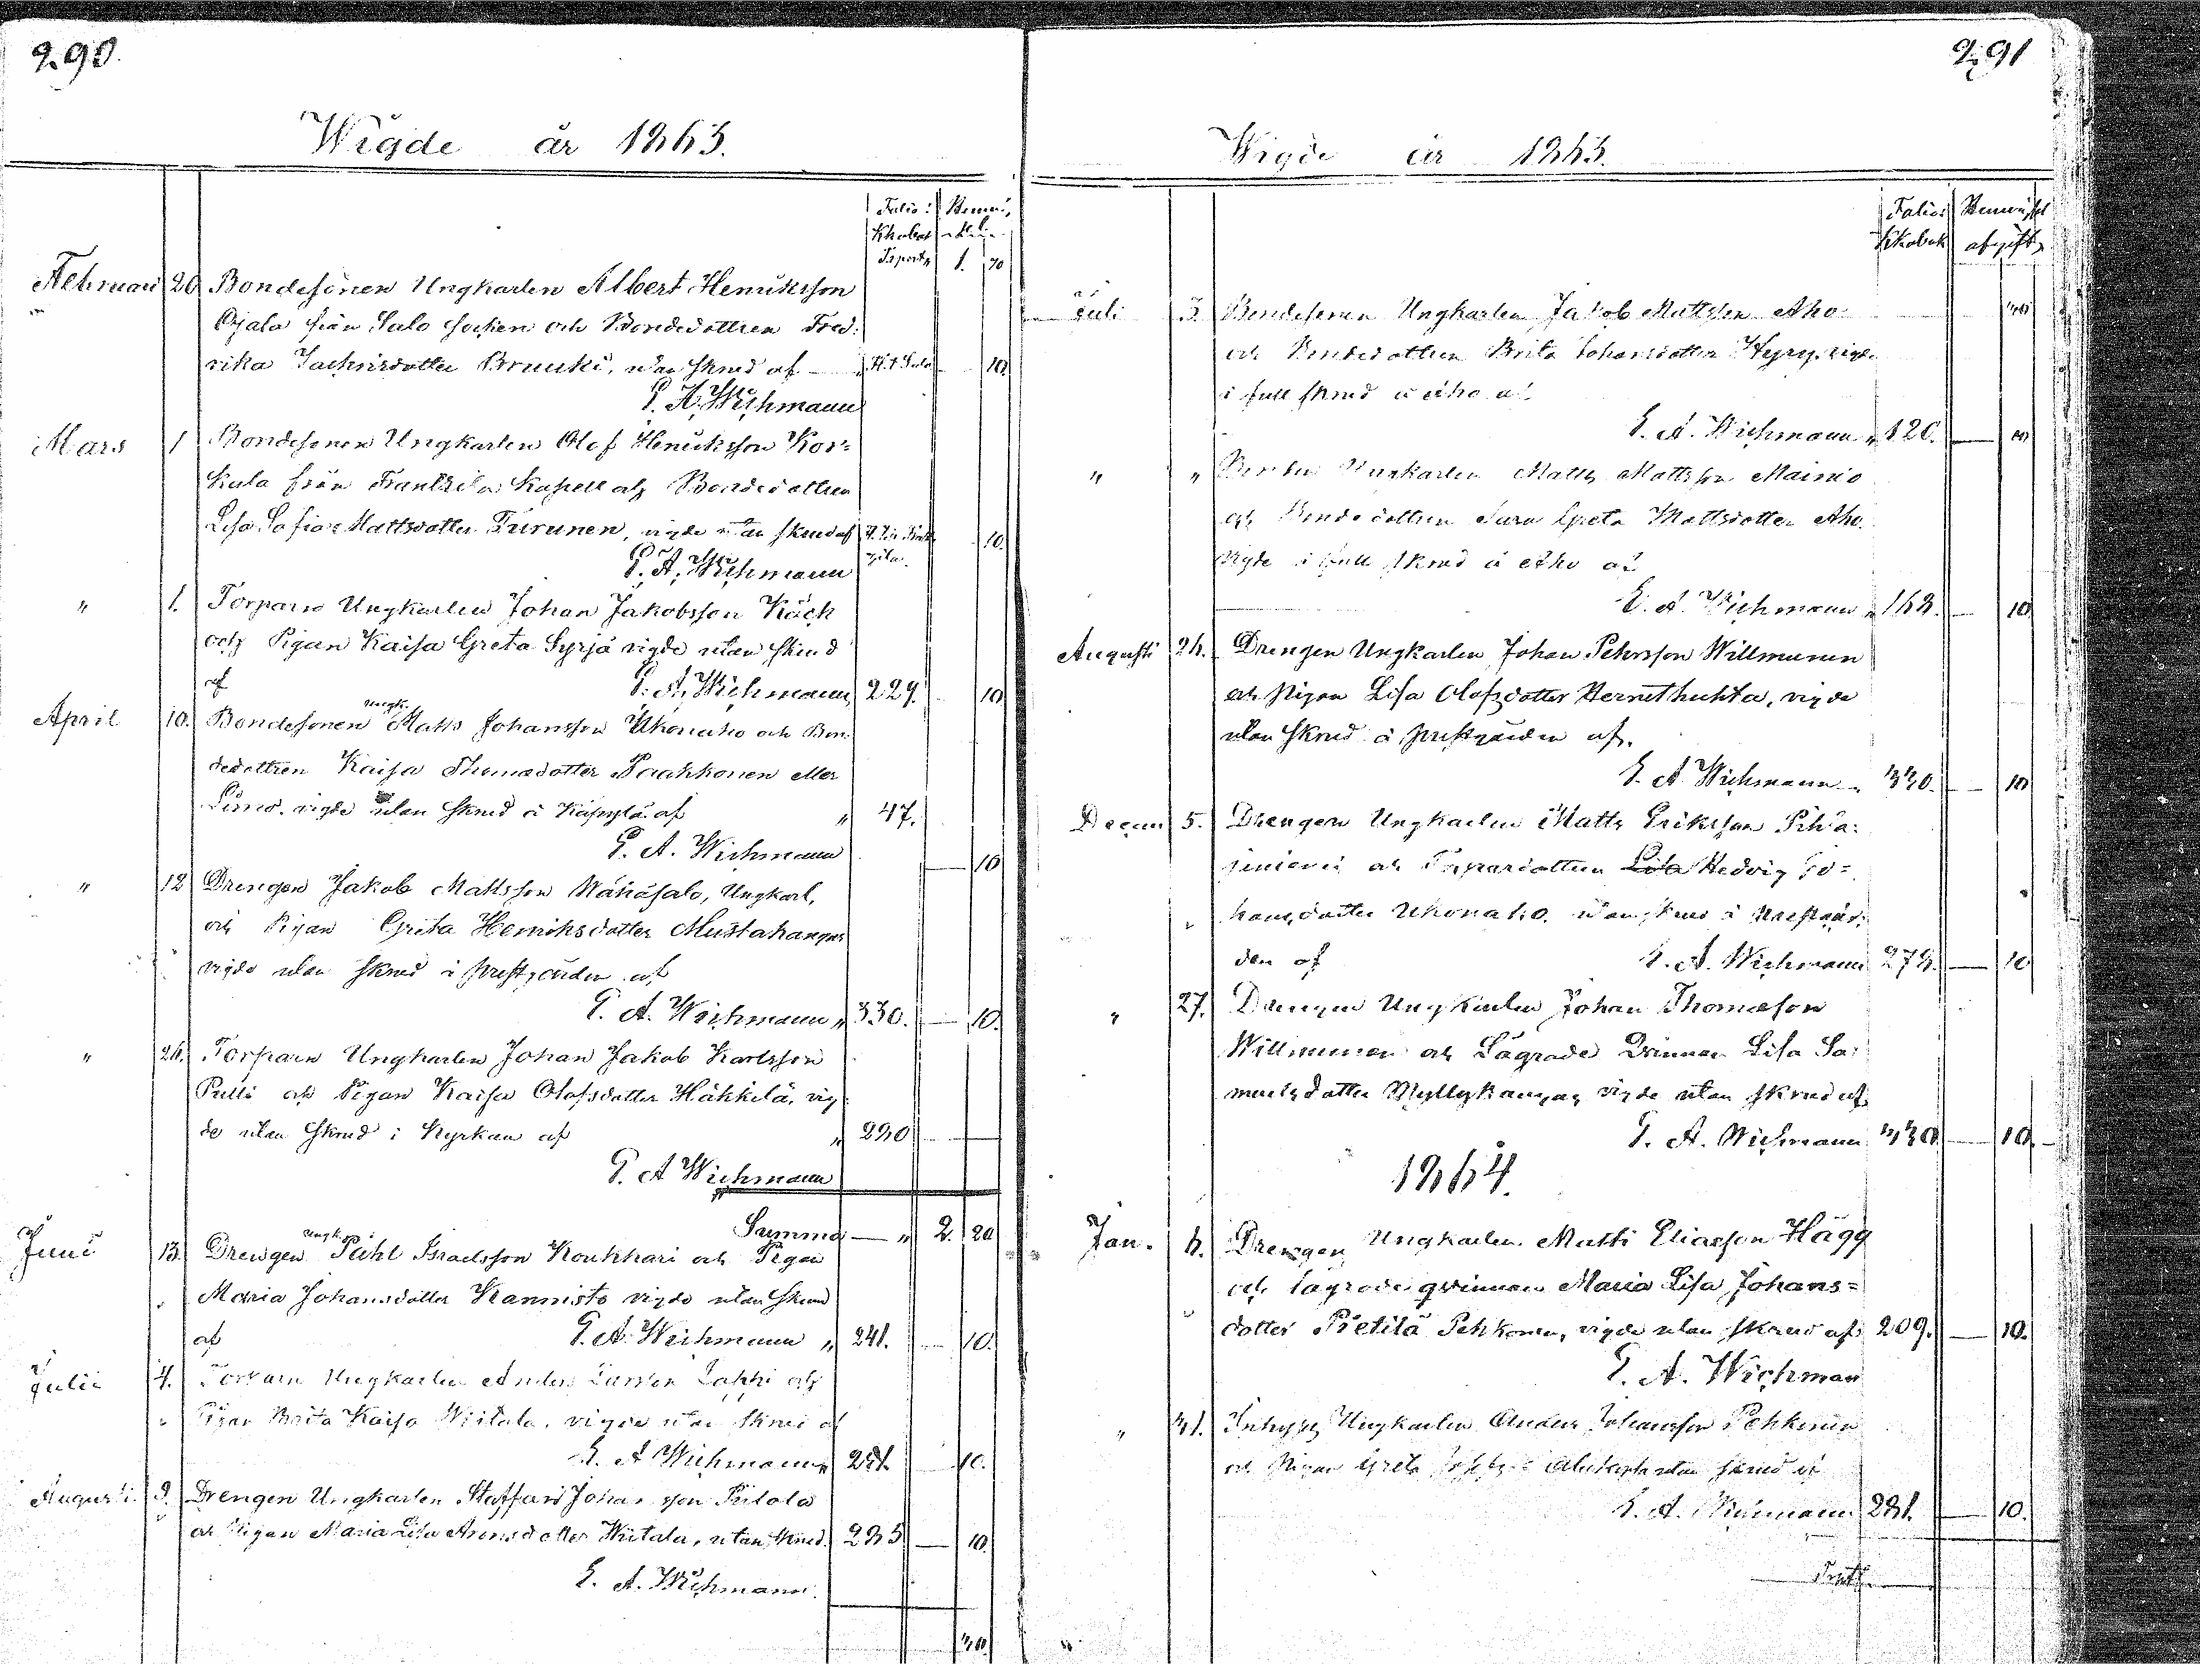 290.
Wigde år 1863.
Folio i Benäm,
Kboken
Transport 1. 70
Februari 20 Bondesonen Ungkarlen Albert Henriksson
Ojala från Salo socken och Bondedottren Fred-
rika Zachrisdotter Bruuki, utan skrud af — 10.
G. A. Wichmann
Mars 1 Bondesonen Ungkarlen Olof Henriksson Kor=
kula från Frantsila Kapell och Bondedottren
Lisa Sofia Mattsdotter Turunen, vigde utan skrud af 10.
G. A. Wichmann
" 1. Torparn Ungkarlen Johan Jakobsson Käck
och Pigan Kaisa Greta Syrjä vigde utan skrud
af G. A. Wichmann 229. 10
April 10. Bondesonen Ungk. Matts Johansson Ukonaho och Bon-
dedottren Kaisa Thomasdotter Paakkonen eller
vigde utan skrud å Käpylä af " 47.
G. A. Wichmann — 10
" 12 Drengen Jakob Mattsson Wähäsalo, Ungkarl,
och Pigan Greta Henriksdotter Mustakangas
vigde utan skrud i prestgården af
G. A. Wichmann " 330. — 10.
" 24. Torparn Ungkarlen Johan Jakob Karlsson
Pulli och Pigan Kaisa Olofsdotter Häkkilä, vig-
de utan skrud i Kyrkan af " 230 —
G. A Wichmann
Summa — " 2. 20
Juni 13. Drengen Ungk. Påhl Israelsson Koukkari och Pigan
Maria Johansdotter Kannisto vigde utan skrud
af G. A. Wichmann " 241. — 10.
Julii 4. Torparn Ungkarlen Anders Larsson Lappi och
Pigan Brita Kaisa Wiitala, vigde utan skrud af
G. A Wichmann " 10.
Augusti 9. Drengen Ungkarlen Staffan Johansson Pitola
och Pigan Maria Lisa Wiitala, utan skrud. 235 — 10.
G. A. Wichmann.
30.
291
Wigde år 1863.
Folio i
Kboken afgift,
Juli 5. Bondesonen Ungkarlen Jakob Mattsson Aho
och Bondedottren Brita Johansdotter Hyry, vigde
i full skrud å Aho af
G. A. Wichmann " 120. —
" " Ungkarlen Matts Mattsson Mainio
och Bondedottren Sara Greta Mattsdotter Aho.
vigde i full skrud å Aho af
G. A. Wichmann " 168. — 10
Augusti 24. Drengen Ungkarlen Johan Pehrsson Willmunen
och Pigan Lisa Olofsdotter Hernethuhta, vigde
utan skrud å prestgården af.
G. A Wichmann " 330. — 10
Decem 5. Drengen Ungkarlen Matts Eriksson Pihla-
janiemi och Torparedottren Lisa Hedvig Jo=
hansdotter Ukonaho. utan skrud å Prestgår-
den af G. A. Wichmann 274. — 10
" 27. Drengen Ungkarlen Johan Thomasson
Willmunen och Lägrade Qvinnan Lisa Sa-
muelsdotter Myllykangas vigde utan skrud af
G. A. Wichmann 330. — 10.
1864.
Jan. 6. Drengen Ungkarlen Matti Eliasson Hägg
och lägrade qvinnan Maria Lisa Johans=
dotter Pietilä Pehkonen, vigde utan skrud af 209. — 10.
G. A. Wichman
" 31. Inhyses Ungkarlen Anders Johansson Pehkonen
och Pigan Greta utan skrud af
G. A. Wichmann 231. — 10.